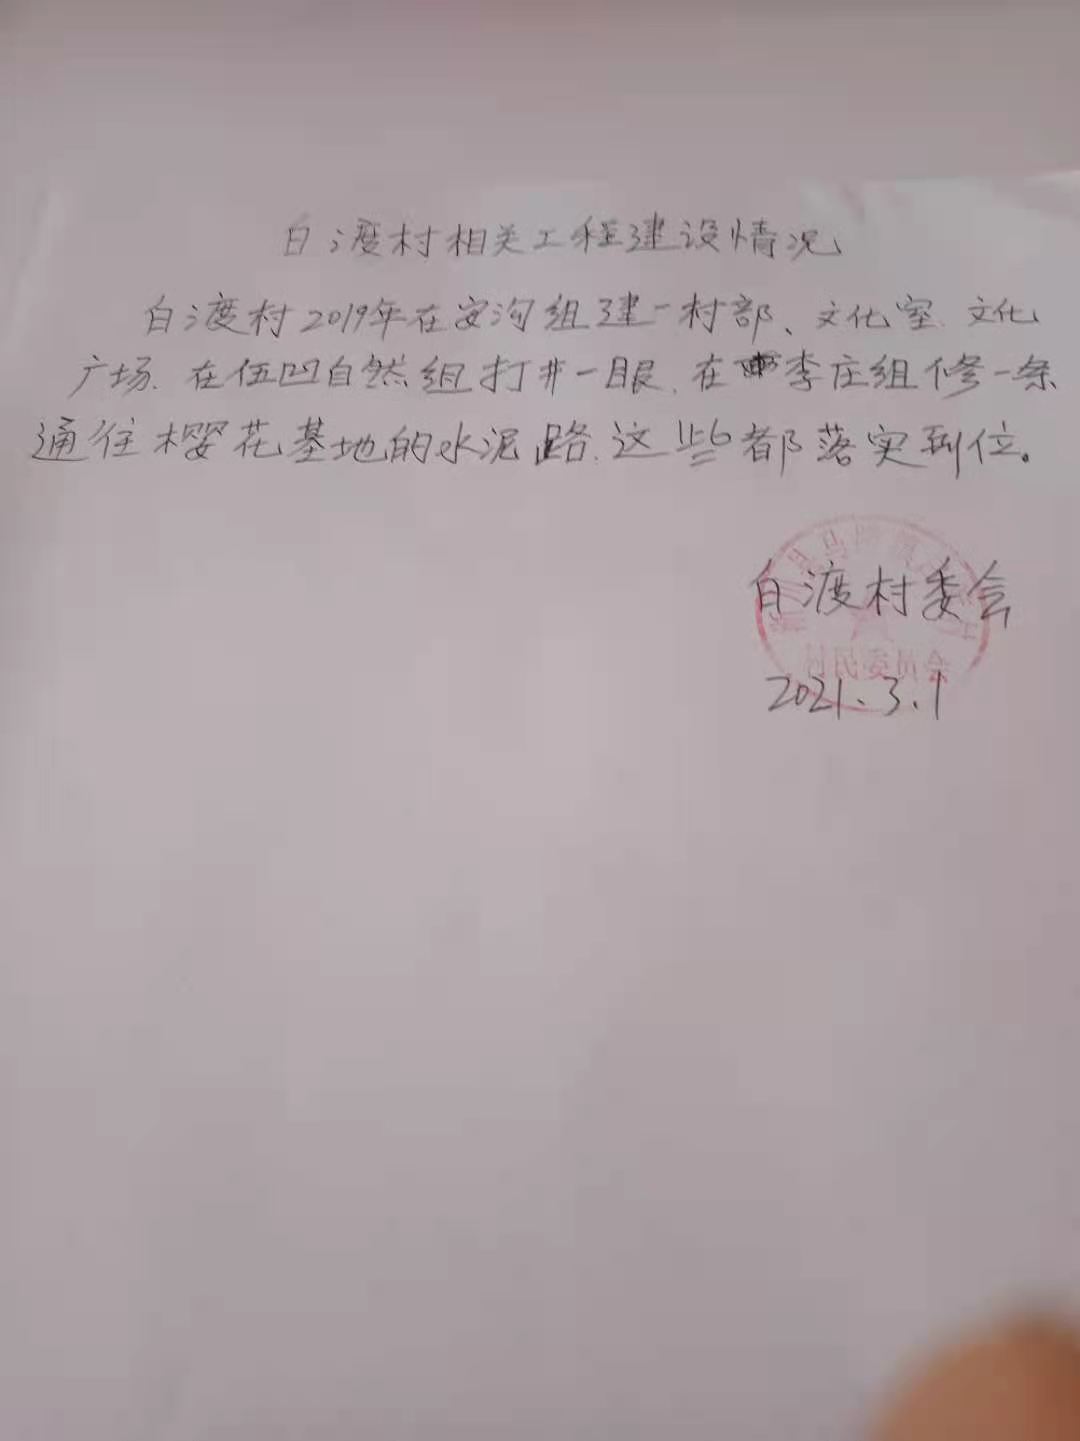 白渡村相关工程建设情况
白渡村2019年在安沟组建一村部、文化室、文化
广场、在伍凹自然组打井一眼、在李庄组修一条
通往樱花基地的水泥路、这些都落实到位。
白渡村委会
村民委员会
2021.3.1